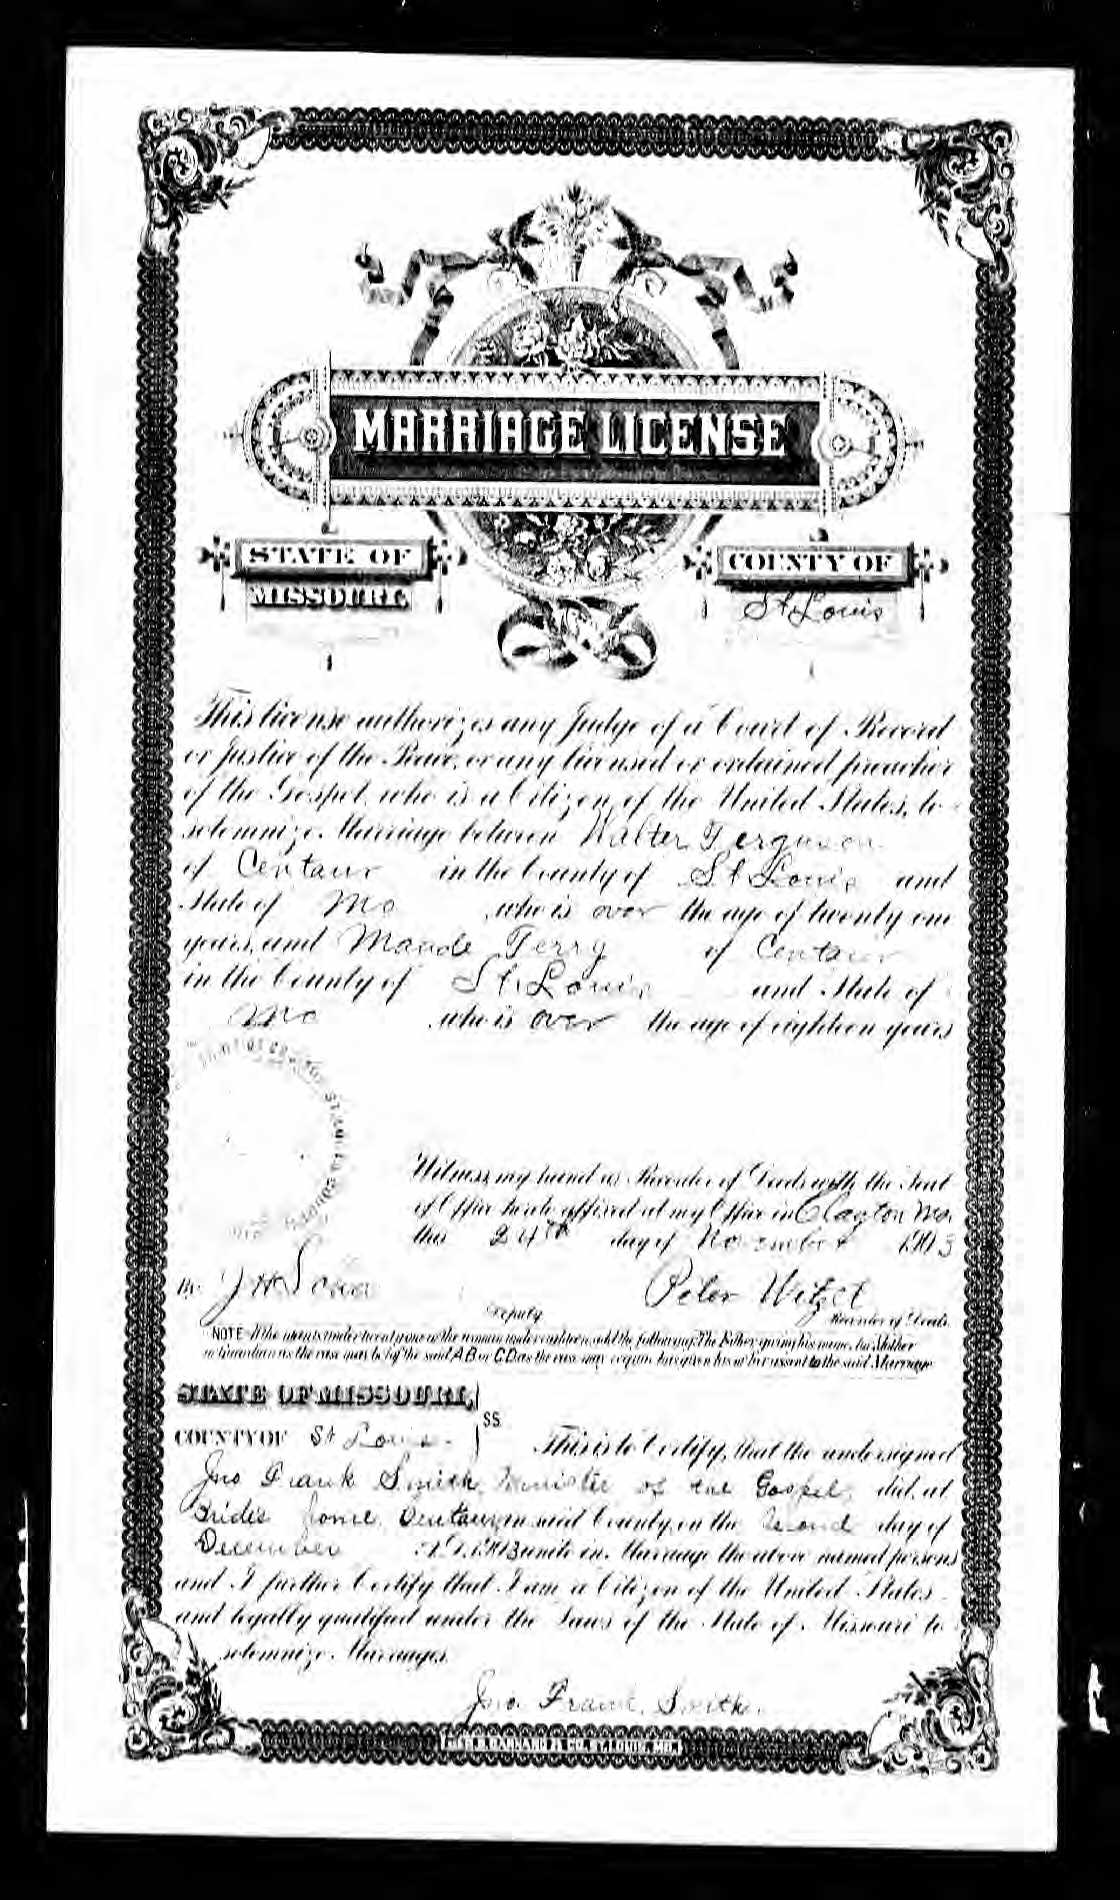 MARRIAGE LICENSE
STATE OF COUNTY OF
MISSOURI, St Louis
This license authorizes any Judge of a Court of Record
or Justice of the Peace, or any licensed or ordained preacher
of the Gospel, who is a Citizen of the United States, to
solemnize Marriage between Walter Ferguson
of Centaur in the County of St Louis and
State of Mo who is over the age of twenty one
years, and Maude Terry of Centaur
in the County of St. Louis and State of
Mo who is over the age of eighteen years
Witness my hand as Recorder of Deeds with the Seal
of Office hereto affixed at my Office in Clayton Mo.
this 24th day of November 1903
By J H Deputy Peter Witzel
Recorder of Deeds
NOTE If the man is under twenty one or the woman under eighteen, add the following: The Father giving his name, his Mother
or Guardian as the case may be of the said A.B. or C.D. as the case may require has given his or her assent to the said Marriage
STATE OF MISSOURI,
COUNTY OF St Louis SS. This is to Certify, that the undersigned
Jno Frank Smith, Minister of the Gospel, did, at
Brides home, Centaur, in said County, on the second day of
December A.D. 1903 unite in Marriage the above named persons
and I further Certify that I am a Citizen of the United States
and legally qualified under the Laws of the State of Missouri to
solemnize Marriages.
Jno. Frank Smith.
BARNARD & CO. ST. LOUIS, MO.